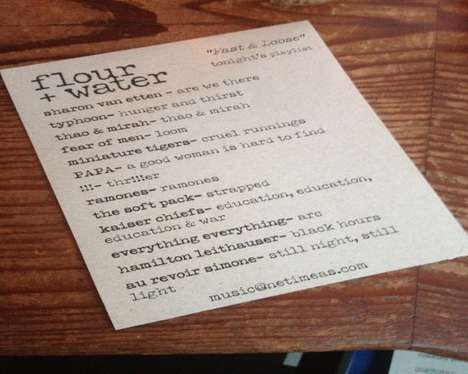 flour
+ water
"Fast & Loose"
tonight's playlist
sharon van etten - are we there
typhoon- hunger and thirst
thao & mirah- thao & mirah
fear of men- loom
miniature tigers- cruel runnings
PAPA- a good woman is hard to find
!!!- thr!!!er
ramones- ramones
the soft pack- strapped
kaiser chiefs- education, education,
education & war
everything everything- arc
hamilton leithauser- black hours
au revoir simone- still night, still
light
music@netimeas.com